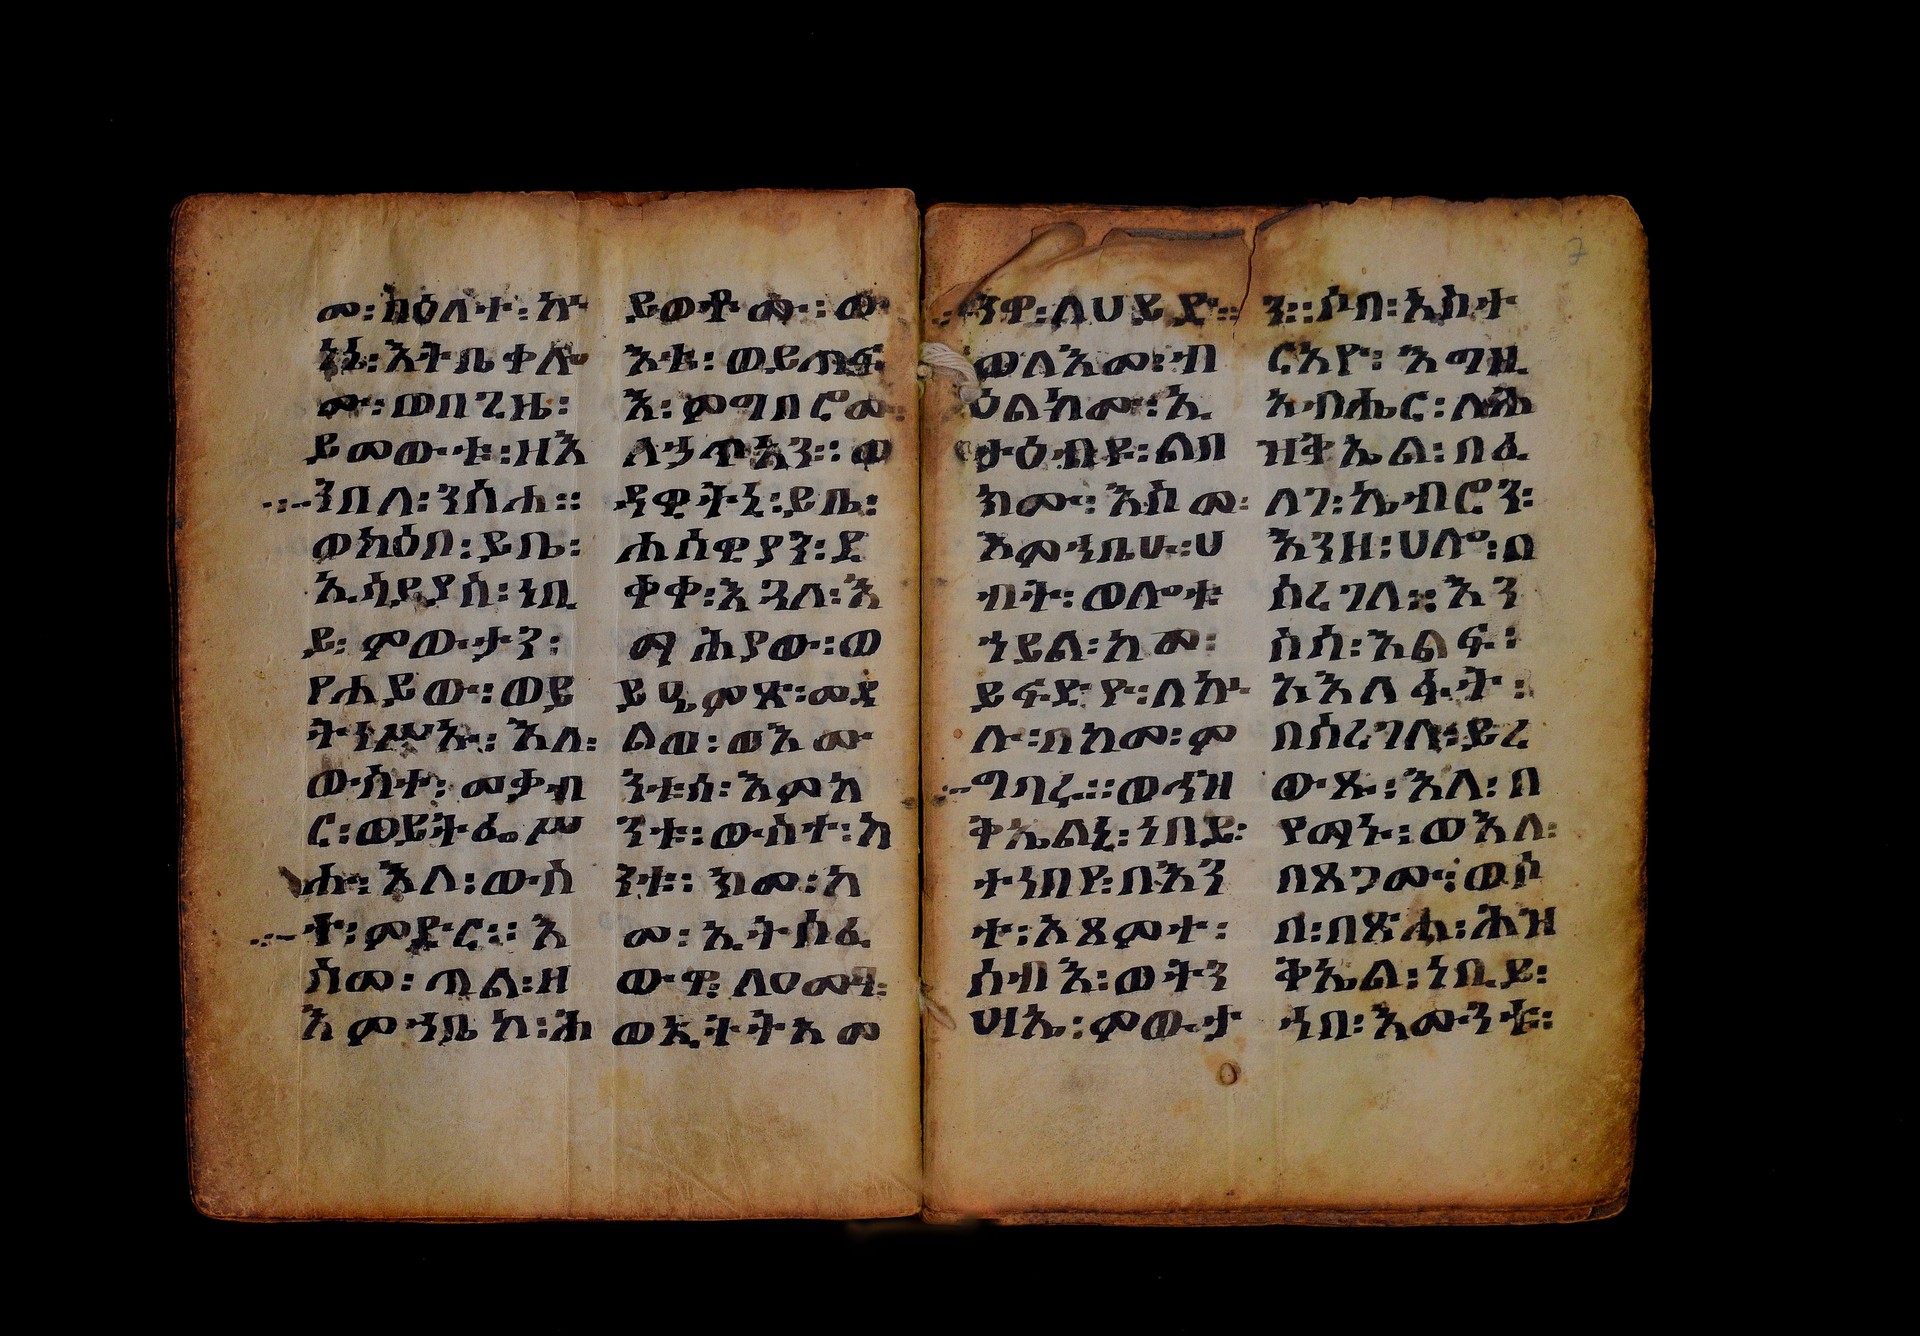 መ፡ በዕለተ፡ ኵ
ነኔ፡ እትቤቀሎ
ሙ፡ ወበጊዜ፡
ይመውቱ፡ ዘእ
ንበለ፡ ንስሐ።
ወካዕበ፡ ይቤ፡
ኢሳይያስ፡ ነቢ
ይ፡ ምውታን፡
የሐይው፡ ወይ
ትነሥኡ፡ እለ፡
ውስተ፡ መቃብ
ር፡ ወይትፌሥ
ሑ፡ እለ፡ ውስ
ተ፡ ምድር። እ
ስመ፡ ጠል፡ ዘ
እምኀቤከ፡ ሕ
እቱ፡ ወይጠፍ
እ፡ ምግበሮሙ፡
ለኃጥኣን። ወ
ዳዊትኒ፡ ይቤ፡
ሐሰዊያን፡ ደ
ቂቀ፡ እጓለ፡ እ
ማሕያው፡ ወ
ይዔምፁ፡ መዳ
ልወ፡ ወእሙ
ንቱሰ፡ እምከ
ንቱ፡ ውስተ፡ ከ
ንቱ፡ ከመ፡ ኢ
መ፡ ኢትሰፈ
ውዋ፡ ለዐመፃ፡
ወኢትትአመ
ንዋ፡ ለሀይድ።
ወለእመ፡ ብ
ዕልክሙ፡ ኢ
ታዕብዩ፡ ልበ
ክሙ፡ እስመ፡
እምኀቤሁ፡ ሀ
ብት፡ ወሎቱ፡
ኀይል፡ ከመ፡
ይፍድዮ፡ ለኵ
ሉ፡ በከመ፡ ም
ግባሩ። ወሕዝ
ቅኤልኒ፡ ነቢይ፡
ተነበየ፡ በእን
ተ፡ አጽምተ፡
ሰብእ፡ ወትን
ሣኤ፡ ምውታ
ን። ሶበ፡ አስተ
ርአዮ፡ እግዚ
አብሔር፡ ለሕ
ዝቅኤል፡ በፈ
ለገ፡ ኬብሮን፡
እንዘ፡ ሀሎ፡ በ
ሰረገለ። እን
ስሰ፡ እልፍ፡
አእላፋት፡
በሰረገላ፡ ይረ
ውጹ፡ እለ፡ በ
የማኑ፡ ወእለ፡
በጸጋሙ፡ ወሶ
በ፡ በጽሐ፡ ሕዝ
ቅኤል፡ ነቢይ፡
ኀበ፡ እሙንቱ፡